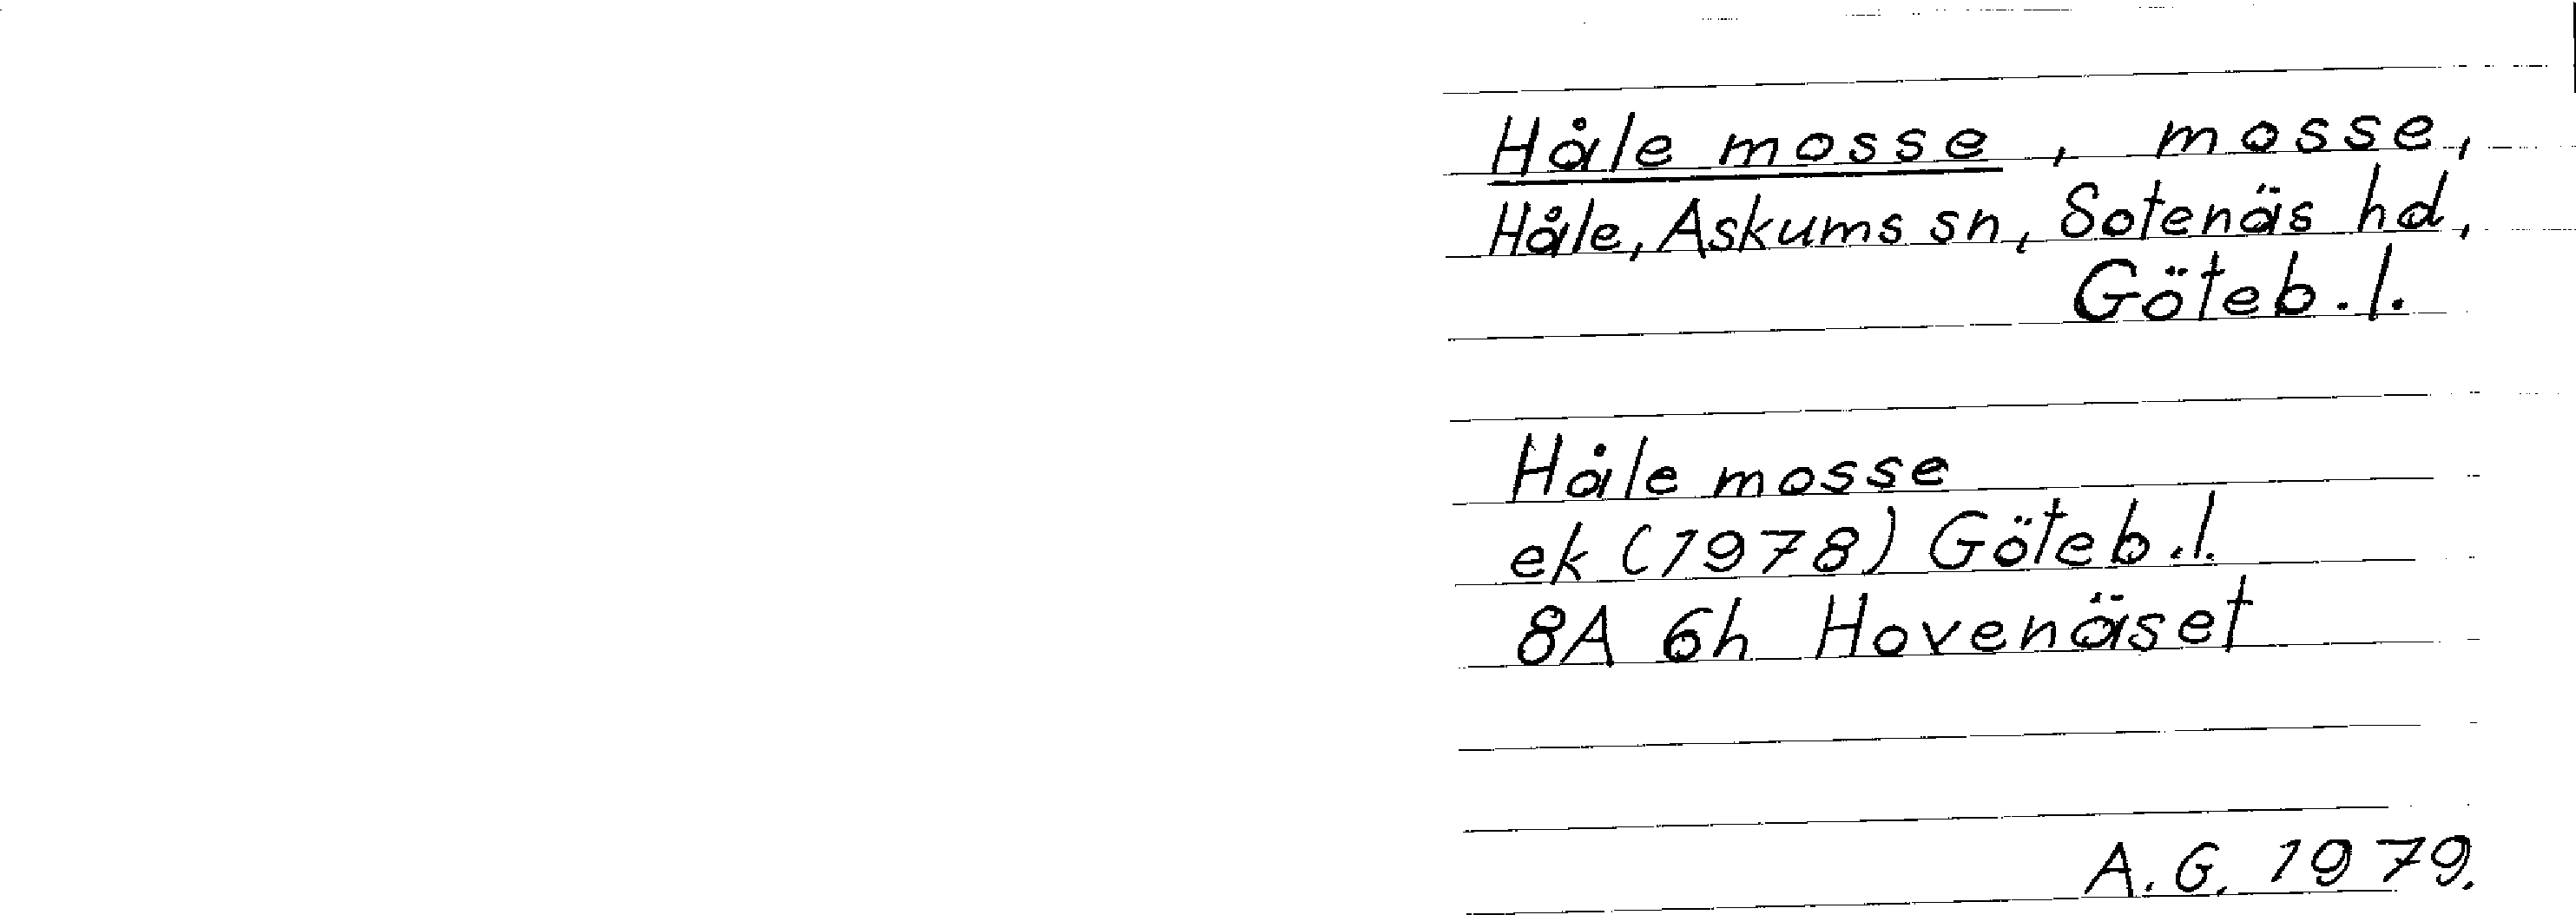 Håle mosse, mosse,
Håle, Askums sn, Sotenäs hd,
Göteb.l.
Håle mosse
ek (1978) Göteb.l.
8A 6h Hovenäset
A.G. 1979.